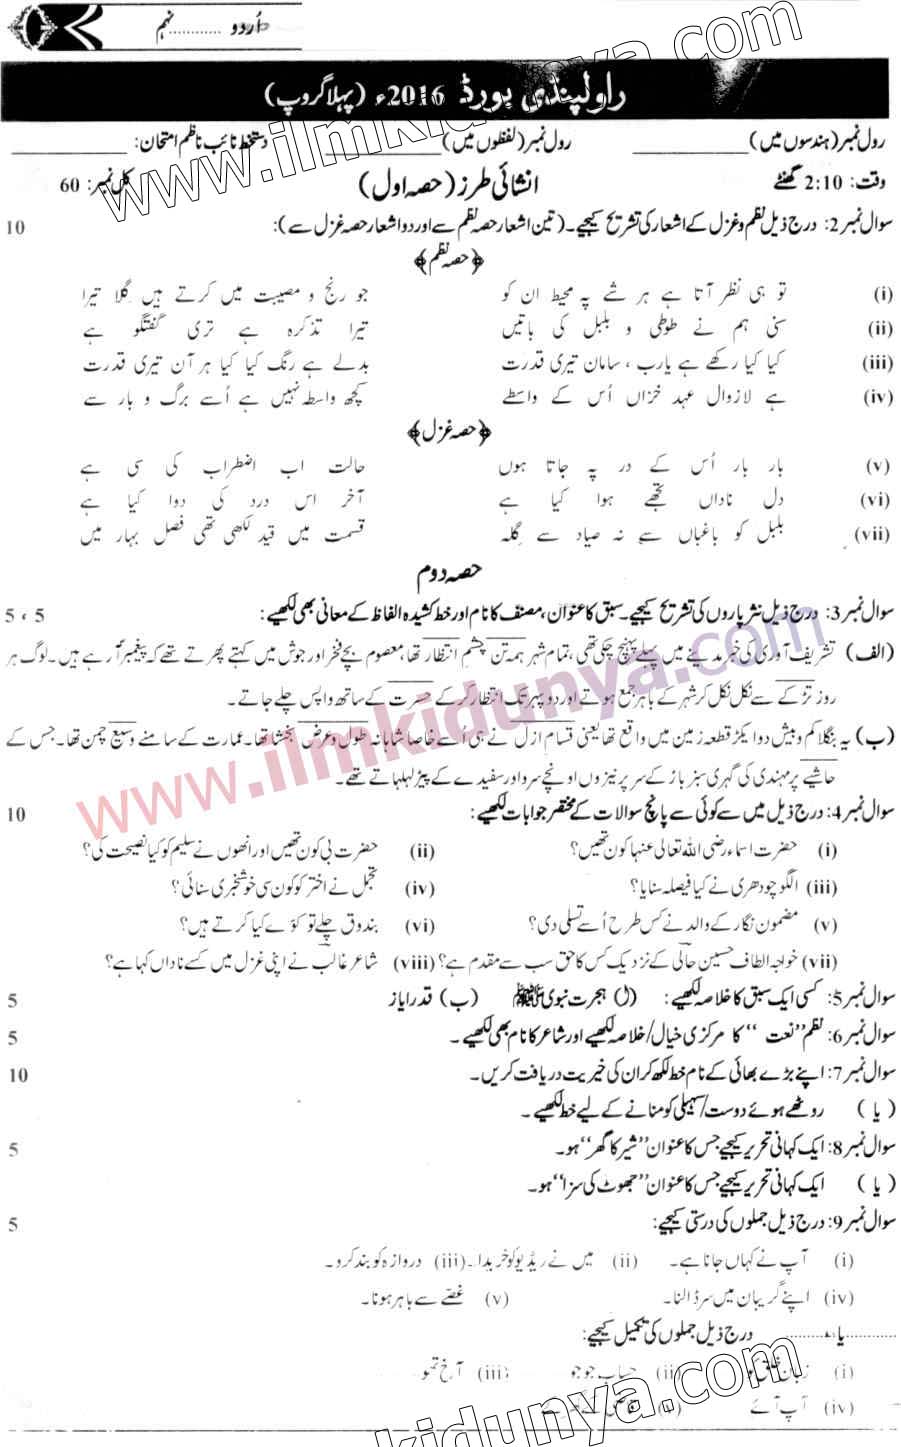 اُردو ............ نہم
راولپنڈی بورڈ 2016ء (پہلا گروپ)
رول نمبر (ہندسوں میں) ____________ رول نمبر (لفظوں میں) ____________ دستخط نائب ناظم امتحان: ____________
وقت: 2:10 گھنٹے انشائی طرز (حصہ اول) کل نمبر: 60
سوال نمبر 2: درج ذیل نظم و غزل کے اشعار کی تشریح کیجیے۔ (تین اشعار حصہ نظم سے اور دو اشعار حصہ غزل سے): 10
﴿حصہ نظم﴾
(i) تو ہی نظر آتا ہے ہر شے پہ محیط ان کو جو رنج و مصیبت میں کرتے ہیں گلا تیرا
(ii) سنی ہم نے طوطی و بلبل کی باتیں تیرا تذکرہ ہے تری گفتگو ہے
(iii) کیا کیا رکھے ہے یارب ، سامان تیری قدرت بدلے ہے رنگ کیا کیا ہر آن تیری قدرت
(iv) ہے لازوال عہد خزاں اُس کے واسطے کچھ واسطہ نہیں ہے اُسے برگ و بار سے
﴿حصہ غزل﴾
(v) بار بار اُس کے در پہ جاتا ہوں حالت اب اضطراب کی سی ہے
(vi) دل ناداں تجھے ہوا کیا ہے آخر اس درد کی دوا کیا ہے
(vii) بلبل کو باغباں سے نہ صیاد سے گلہ قسمت میں قید لکھی تھی فصل بہار میں
حصہ دوم
سوال نمبر 3: درج ذیل نثر پاروں کی تشریح کیجیے۔ سبق کا عنوان، مصنف کا نام اور خط کشیدہ الفاظ کے معانی بھی لکھیے: 5 ، 5
(الف) تشریف آوری کی خبر مدینے میں پہلے پہنچ چکی تھی، تمام شہر ہمہ تن چشم انتظار تھا، معصوم بچے فخر اور جوش میں کہتے پھرتے تھے کہ پیغمبرؐ آ رہے ہیں۔ لوگ ہر
روز تڑکے سے نکل نکل کر شہر کے باہر جمع ہوتے اور دوپہر تک انتظار کر کے حسرت کے ساتھ واپس چلے جاتے۔
(ب) یہ بنگلا کم و بیش دو ایکڑ قطعہ زمین میں واقع تھا یعنی قسام ازل نے ہی اُسے خاصا شاہانہ طول و عرض بخشا تھا۔ عمارت کے سامنے وسیع چمن تھا۔ جس کے
حاشیے پر مہندی کی گہری سبز باڑ کے سر پر نیزوں اونچے سرو اور سفیدے کے پیڑ لہلہاتے تھے۔
سوال نمبر 4: درج ذیل میں سے کوئی سے پانچ سوالات کے مختصر جوابات لکھیے: 10
(i) حضرت اسماء رضی اللہ تعالیٰ عنہا کون تھیں؟ (ii) حضرت بی کون تھیں اور انھوں نے سلیم کو کیا نصیحت کی؟
(iii) الگو چودھری نے کیا فیصلہ سنایا؟ (iv) تجمل نے اختر کو کون سی خوشخبری سنائی؟
(v) مضمون نگار کے والد نے کس طرح اُسے تسلی دی؟ (vi) بندوق چلے تو کوّے کیا کرتے ہیں؟
(vii) خواجہ الطاف حسین حالی کے نزدیک کس کا حق سب سے مقدم ہے؟ (viii) شاعر غالب نے اپنی غزل میں کسے ناداں کہا ہے؟
سوال نمبر 5: کسی ایک سبق کا خلاصہ لکھیے: (ا) ہجرت نبوی ﷺ (ب) قدر ایاز 5
سوال نمبر 6: نظم ”نعت“ کا مرکزی خیال/خلاصہ لکھیے اور شاعر کا نام بھی لکھیے۔ 5
سوال نمبر 7: اپنے بڑے بھائی کے نام خط لکھ کر ان کی خیریت دریافت کریں۔ 10
(یا) روٹھے ہوئے دوست/سہیلی کو منانے کے لیے خط لکھیے۔
سوال نمبر 8: ایک کہانی تحریر کیجیے جس کا عنوان ”شیر کا گھر“ ہو۔ 5
(یا) ایک کہانی تحریر کیجیے جس کا عنوان ”جھوٹ کی سزا“ ہو۔
سوال نمبر 9: درج ذیل جملوں کی درستی کیجیے: 5
(i) آپ نے کہاں جانا ہے۔ (ii) میں نے ریڈیو کو خریدا۔ (iii) دروازہ کو بند کرو۔
(iv) اپنے گریبان میں سر ڈالنا۔ (v) غصے سے باہر ہونا۔
............ یا ............ درج ذیل جملوں کی تکمیل کیجیے:
(i) زبان خلق کو (ii) حساب جو جو (iii) آخ تھو
(iv) آپ آئے (v)
www.ilmkidunya.com
www.ilmkidunya.com
kidunya.com